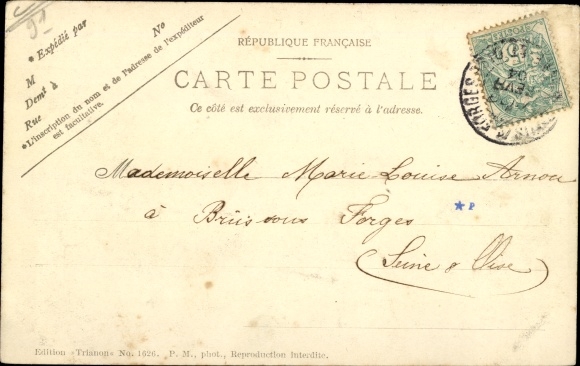 91
* Expédié par
M No
Demt à
Rue
*L'inscription du nom et de l'adresse de l'expéditeur
est facultative.
RÉPUBLIQUE FRANÇAISE
CARTE POSTALE
Ce côté est exclusivement réservé à l'adresse.
Mademoiselle Marie-Louise Arnou
à Brüis sous Forges
*P
(Seine & Oise)
Edition «Trianon» No. 1626. P. M., phot., Reproduction interdite.